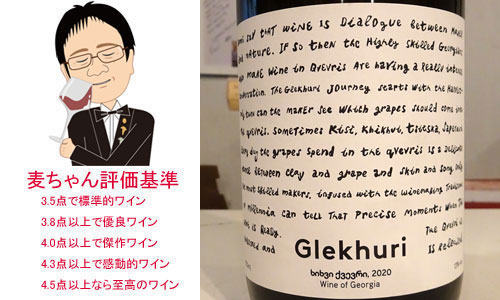 麦ちゃん評価基準
3.5点で標準的ワイン
3.8点以上で優良ワイン
4.0点以上で傑作ワイン
4.3点以上で感動的ワイン
4.5点以上なら至高のワイン
say that wine is Dialogue between
nature. If so then the Highly skilled Georgians
make wine in Qvevris are having a really intense
The Glekhuri journey starts with the
can the maker see which grapes should come
qvevris. Sometimes Kisi, Khikhvi, Tsitska, Saperavi
day the grapes spend in the qvevris is a
between clay and grape and skin and song. Only
most skilled makers, infused with the winemaking
millennia can tell that precise moments when the
is ready. The Qvevri is
and is
Glekhuri
ხიხვი ქვევრი, 2020
Wine of Georgia